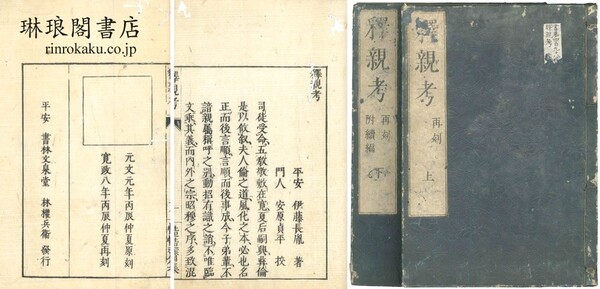 琳琅閣書店
rinrokaku.co.jp
釋親考
平安 伊藤長胤 著
門人 安原貞平 挍
司徒受命五敎敬敷在寬夏后嗣興彝倫
是以攸叙夫人倫之道風化之本必也名
正而後言順言順而後事成今子弟輩不
諳親屬稱呼之
文乖其義而內外之宗昭穆之序多致混
釋親考
元文元年丙辰仲夏原刻
寬政八年丙辰仲夏再刻
平安 書林文泉堂 林權兵衞 發行
釋親考 再刻 上
釋親考 再刻 附續編 下